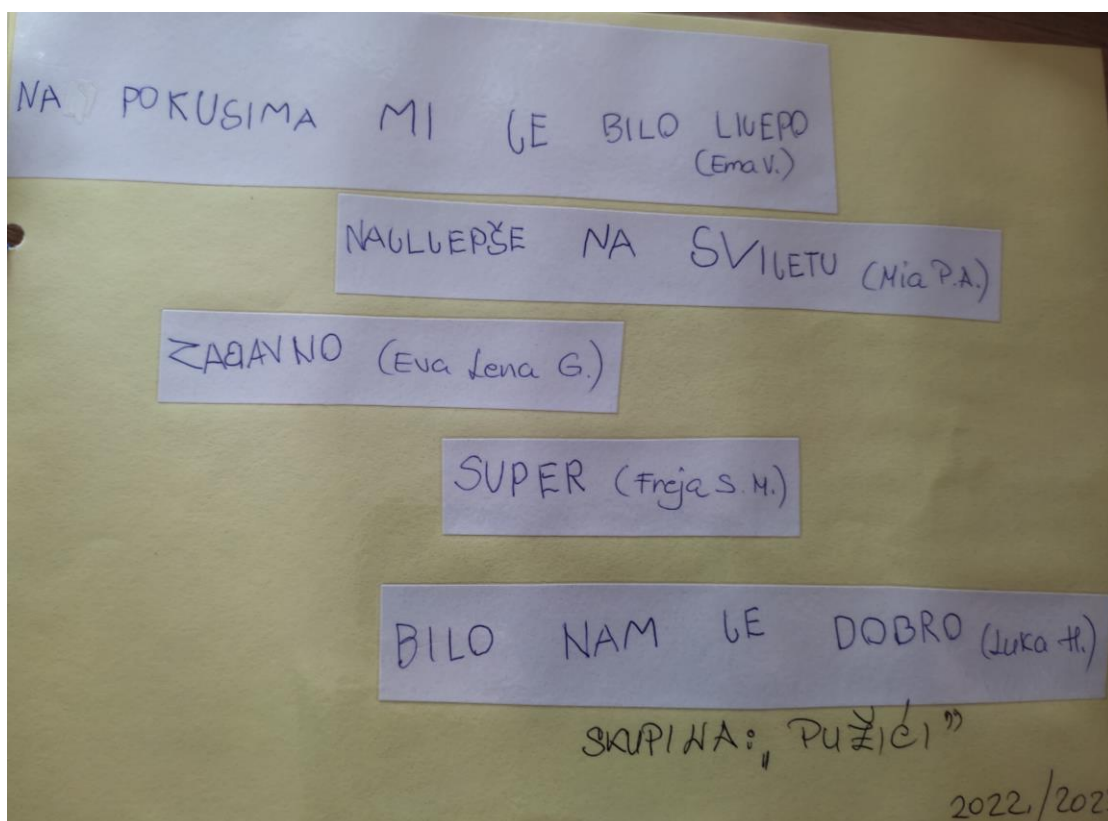 NA POKUSIMA MI JE BILO LIJEPO
(Ema V.)
NAJLJEPŠE NA SVIJETU (Mia P.A.)
ZABAVNO (Eva Lena G.)
SUPER (Freja S. M.)
BILO NAM JE DOBRO (Luka H.)
SKUPINA: „PUŽIĆI”
2022./202